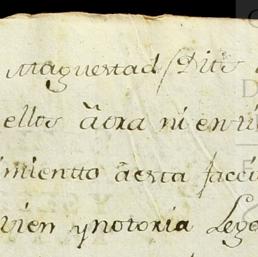 Maguestad Ditto
ellos aora ni en ti
imientto aesta facci
vien y notoria Lege